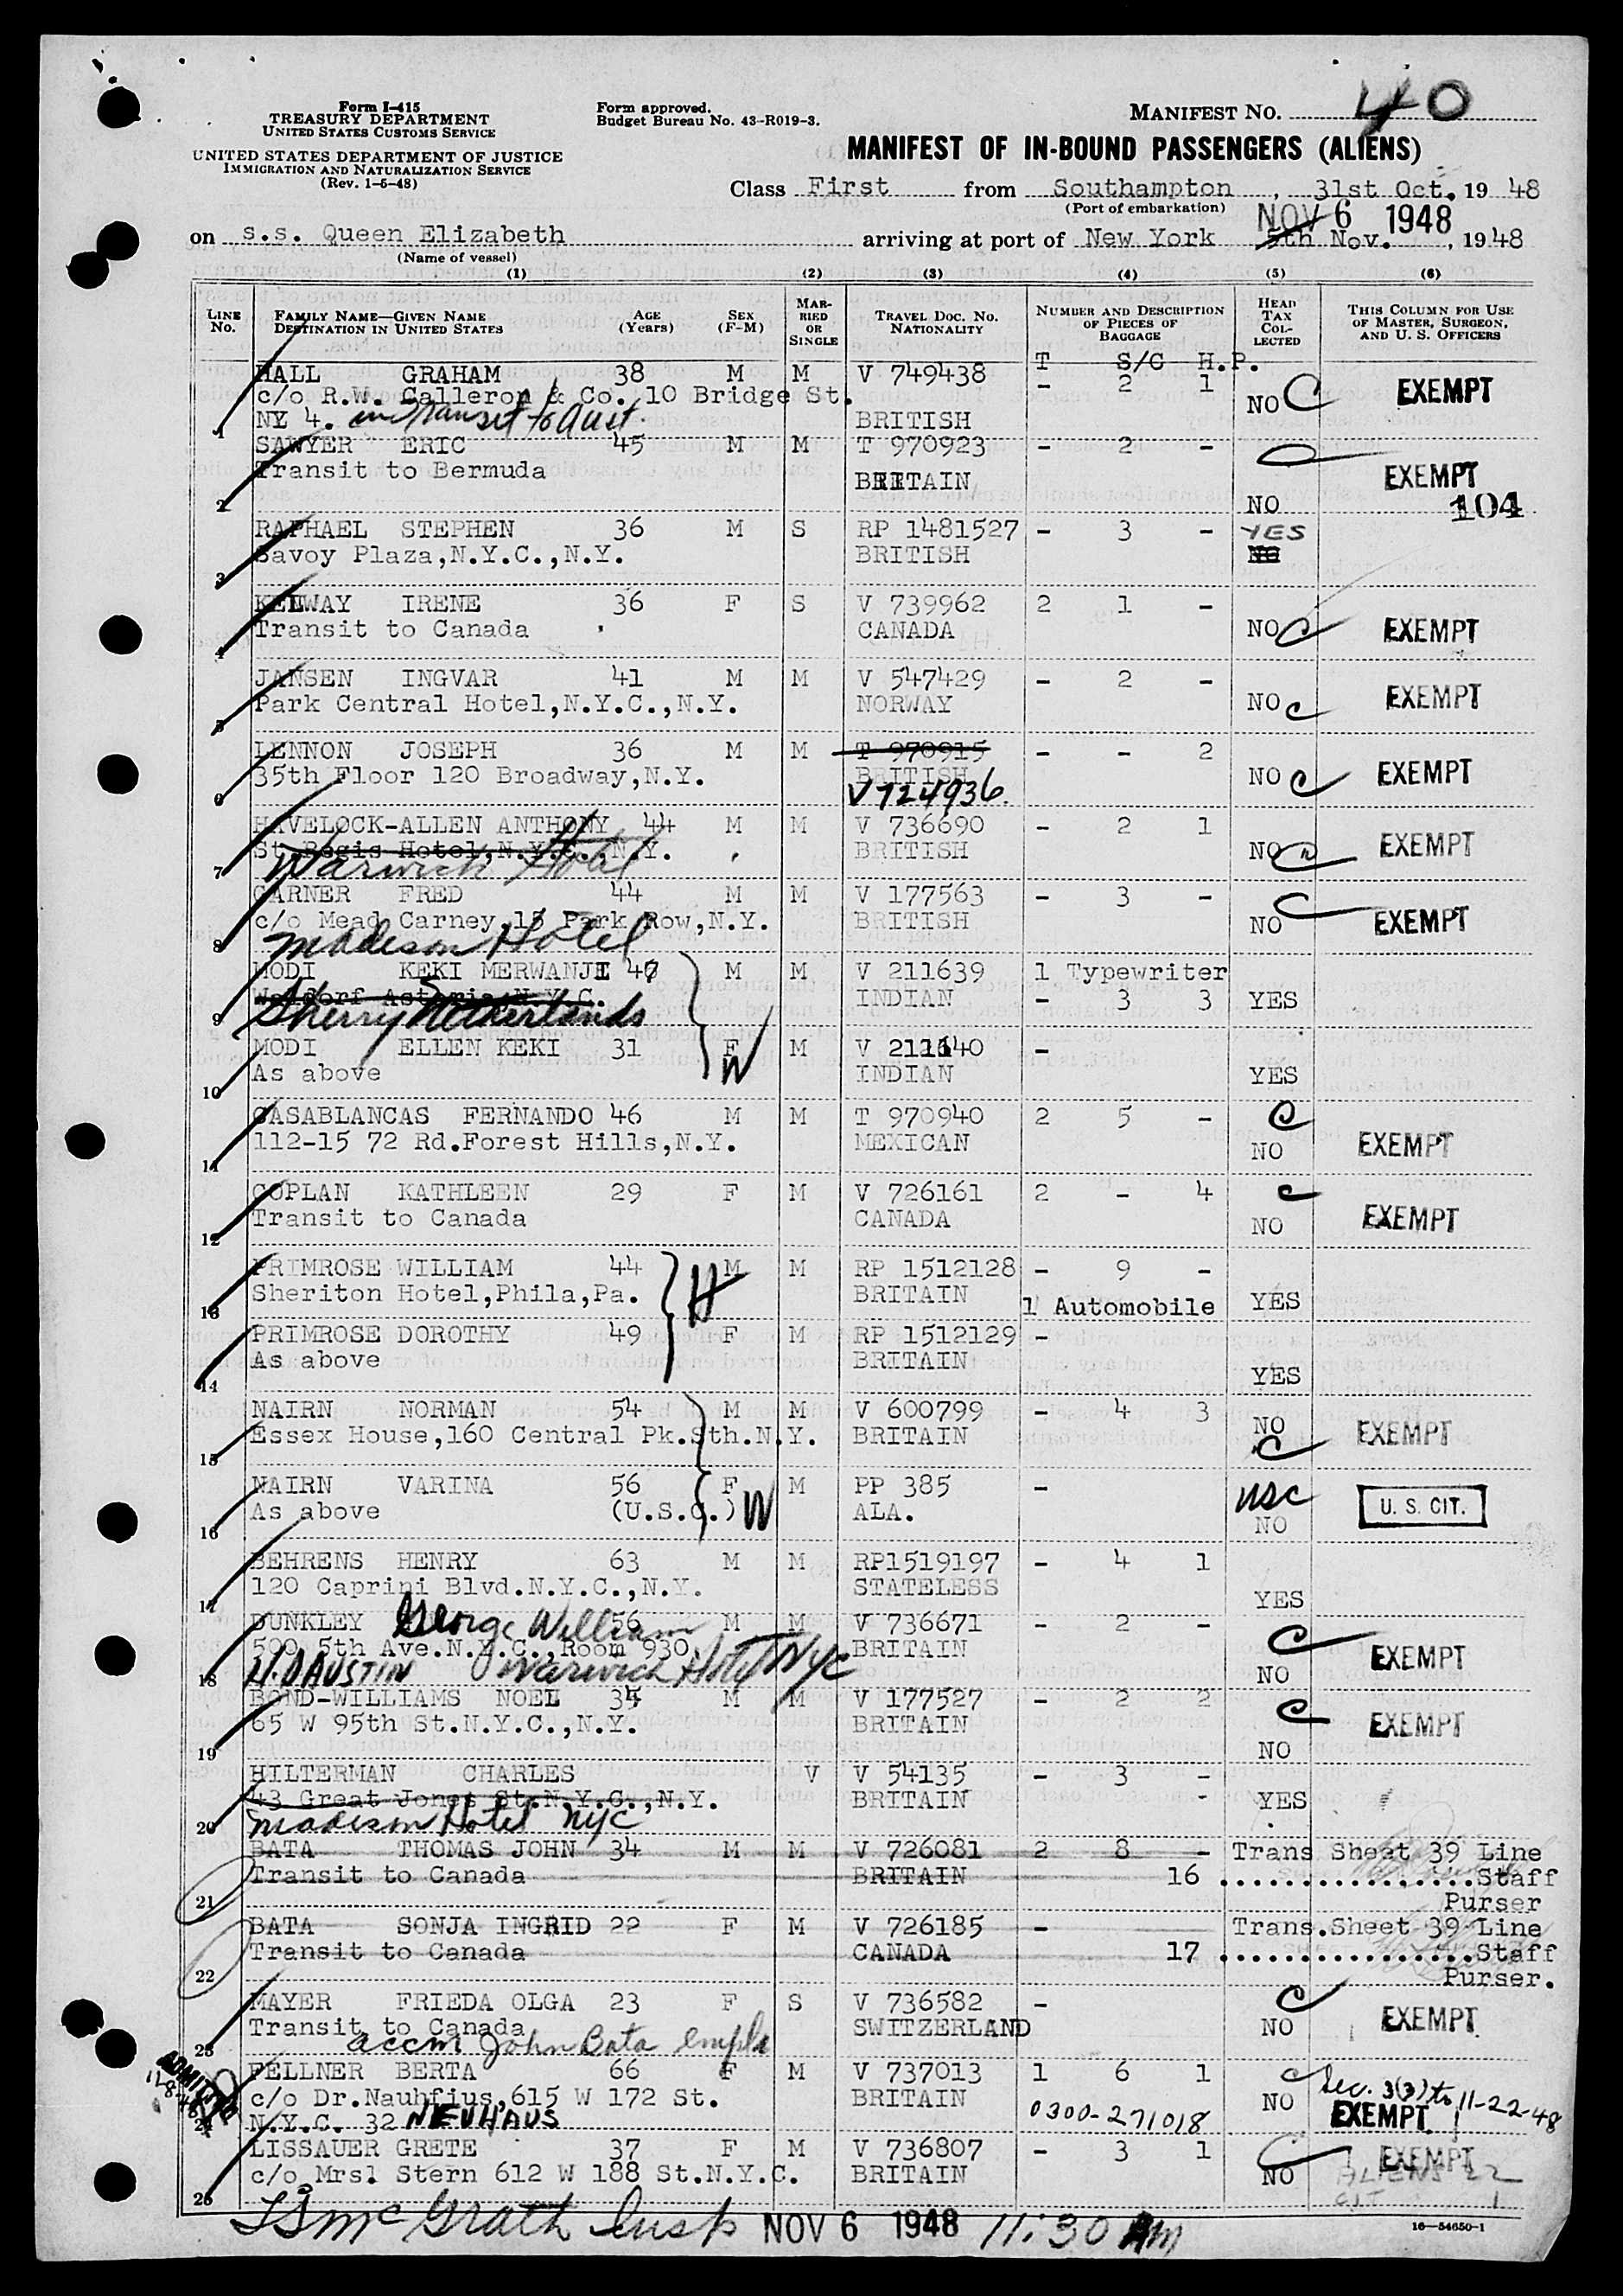 Form I-415
TREASURY DEPARTMENT
UNITED STATES CUSTOMS SERVICE
UNITED STATES DEPARTMENT OF JUSTICE
IMMIGRATION AND NATURALIZATION SERVICE
(Rev. 1-5-48)
Form approved.
Budget Bureau No. 43-R019-3.
MANIFEST NO. 40
MANIFEST OF IN-BOUND PASSENGERS (ALIENS)
Class First from Southampton, 31st Oct. 1948
(Port of embarkation)
NOV 6 1948
on s.s. Queen Elizabeth arriving at port of New York 5th Nov., 1948
(Name of vessel)
(1) (2) (3) (4) (5) (6)
LINE No. FAMILY NAME—GIVEN NAME DESTINATION IN UNITED STATES AGE (Years) SEX (F-M) MARRIED OR SINGLE TRAVEL DOC. NO. NATIONALITY NUMBER AND DESCRIPTION OF PIECES OF BAGGAGE HEAD TAX COLLECTED THIS COLUMN FOR USE OF MASTER, SURGEON, AND U. S. OFFICERS
T S/C H.P.
HALL GRAHAM 38 M M V 749438 - 2 1 NO C EXEMPT
c/o R.W. Calleron & Co. 10 Bridge St.
1 NY 4. in transit to Aust. BRITISH
SAWYER ERIC 45 M M T 970923 - 2 -
Transit to Bermuda BRITAIN EXEMPT
2 NO 104
RAPHAEL STEPHEN 36 M S RP 1481527 - 3 - YES
Savoy Plaza,N.Y.C.,N.Y. BRITISH NO
3
KELWAY IRENE 36 F S V 739962 2 1 -
Transit to Canada CANADA NO C EXEMPT
4
JANSEN INGVAR 41 M M V 547429 - 2 -
Park Central Hotel,N.Y.C.,N.Y. NORWAY NO C EXEMPT
5
LENNON JOSEPH 36 M M T 970915 - - 2
35th Floor 120 Broadway,N.Y. BRITISH NO C EXEMPT
6 V724936.
HAVELOCK-ALLEN ANTHONY 44 M M V 736690 - 2 1
St.Regis Hotel,N.Y.C.,N.Y. BRITISH NO EXEMPT
7 Warwick Hotel
CARNER FRED 44 M M V 177563 - 3 - C
c/o Mead Carney,15 Park Row,N.Y. BRITISH NO EXEMPT
8 Madison Hotel
MODI KEKI MERWANJI 47 M M V 211639 1 Typewriter
Waldorf Astoria N.Y.C. INDIAN - 3 3 YES
9 Sherry Netherlands
MODI ELLEN KEKI 31 F M V 211640 -
As above W INDIAN YES
10
CASABLANCAS FERNANDO 46 M M T 970940 2 5 - C
112-15 72 Rd.Forest Hills,N.Y. MEXICAN NO EXEMPT
11
COPLAN KATHLEEN 29 F M V 726161 2 - 4 C
Transit to Canada CANADA NO EXEMPT
12
PRIMROSE WILLIAM 44 M M RP 1512128 - 9 -
Sheriton Hotel,Phila,Pa. H BRITAIN 1 Automobile YES
13
PRIMROSE DOROTHY 49 F M RP 1512129 -
As above BRITAIN YES
14
NAIRN NORMAN 54 M M V 600799 - 4 3 NO
Essex House,160 Central Pk.Sth.N.Y. BRITAIN C EXEMPT
15
NAIRN VARINA 56 F M PP 385 - USC
As above (U.S.C.) W ALA. NO U. S. CIT.
16
BEHRENS HENRY 63 M M RP1519197 - 4 1
120 Caprini Blvd.N.Y.C.,N.Y. STATELESS YES
17
DUNKLEY George William 56 M M V 736671 - 2 - C
500 5th Ave.N.Y.C.,Room 930 BRITAIN NO EXEMPT
18 H.D AUSTIN Warwick Hotel NYC
BOND-WILLIAMS NOEL 34 M M V 177527 - 2 2 C
65 W 95th St.N.Y.C.,N.Y. BRITAIN EXEMPT
19 NO
HILTERMAN CHARLES V V 54135 - 3 -
43 Great Jones St.N.Y.C.,N.Y. BRITAIN - YES
20 Madison Hotel NYC
BATA THOMAS JOHN 34 M M V 726081 2 8 - Trans Sheet 39 Line
Transit to Canada BRITAIN 16 ................Staff
21 Purser
BATA SONJA INGRID 22 F M V 726185 - Trans.Sheet 39 Line
Transit to Canada CANADA 17 ................Staff
22 Purser.
MAYER FRIEDA OLGA 23 F S V 736582 - C
Transit to Canada SWITZERLAND NO EXEMPT
23 accm John Bata empl
ADMITTED
FELLNER BERTA 66 F M V 737013 1 6 1 C Sec. 3(3) to 11-22-48
c/o Dr.Nauhfius,615 W 172 St. BRITAIN NO EXEMPT
24 N.Y.C. 32 NEUHAUS 0300-271018
LISSAUER GRETE 37 F M V 736807 - 3 1 C EXEMPT
c/o Mrsl Stern 612 W 188 St.N.Y.C. BRITAIN NO ALIENS 22
25 CIT 1
McGrath Insp NOV 6 1948 11:30 AM
16—54650-1